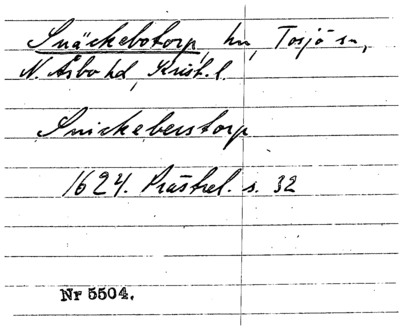 Snäckebotorp, hn, Tosjö sn,
N. Åsbo hd, Krist. l.
Snickeberstorp
1624. Prästrel. s. 32
Nr 5504.